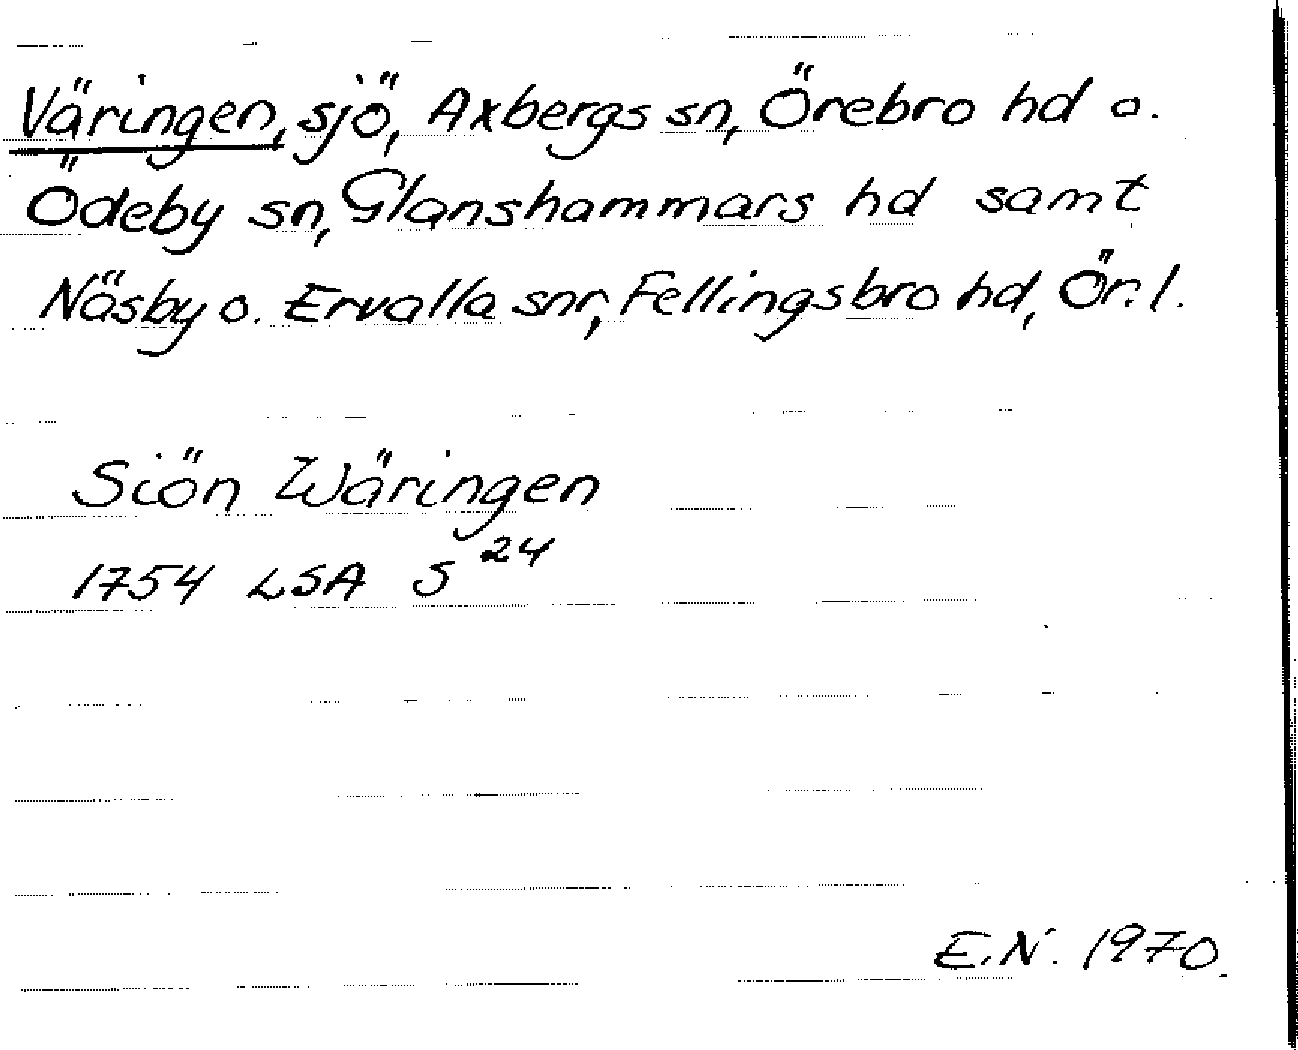 Väringen, sjö, Axbergs sn, Örebro hd o.
Ödeby sn, Glanshammars hd samt
Näsby o. Ervalla snr, Fellingsbro hd, Ör. l.
Siön Wäringen
1754 LSA S 24
E.N. 1970.